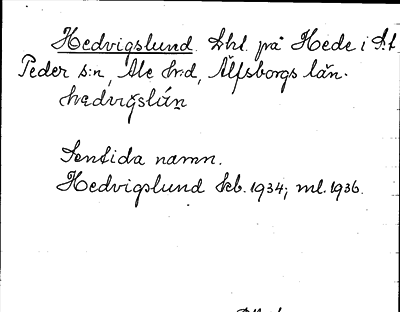 Hedvigslund. Lht. på Hede i S:t
Peder s:n, Ale hd, Älfsborgs län.
hædvi̇gslún̠
Sentida namn.
Hedvigslund kb. 1934; ml. 1936.